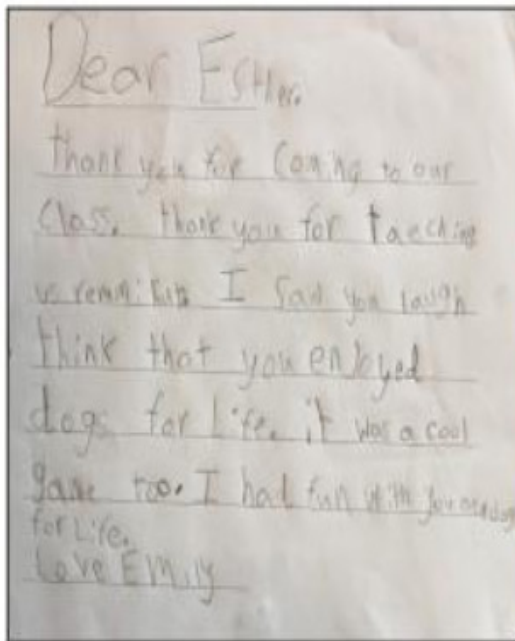 Dear Esther.
thank you for Coming to our
Class. thank you for taeching
us I saw you laugh
think that you enJoyed
dogs for Life. it was a cool
game too. I had fun with
for Life.
Love Emily